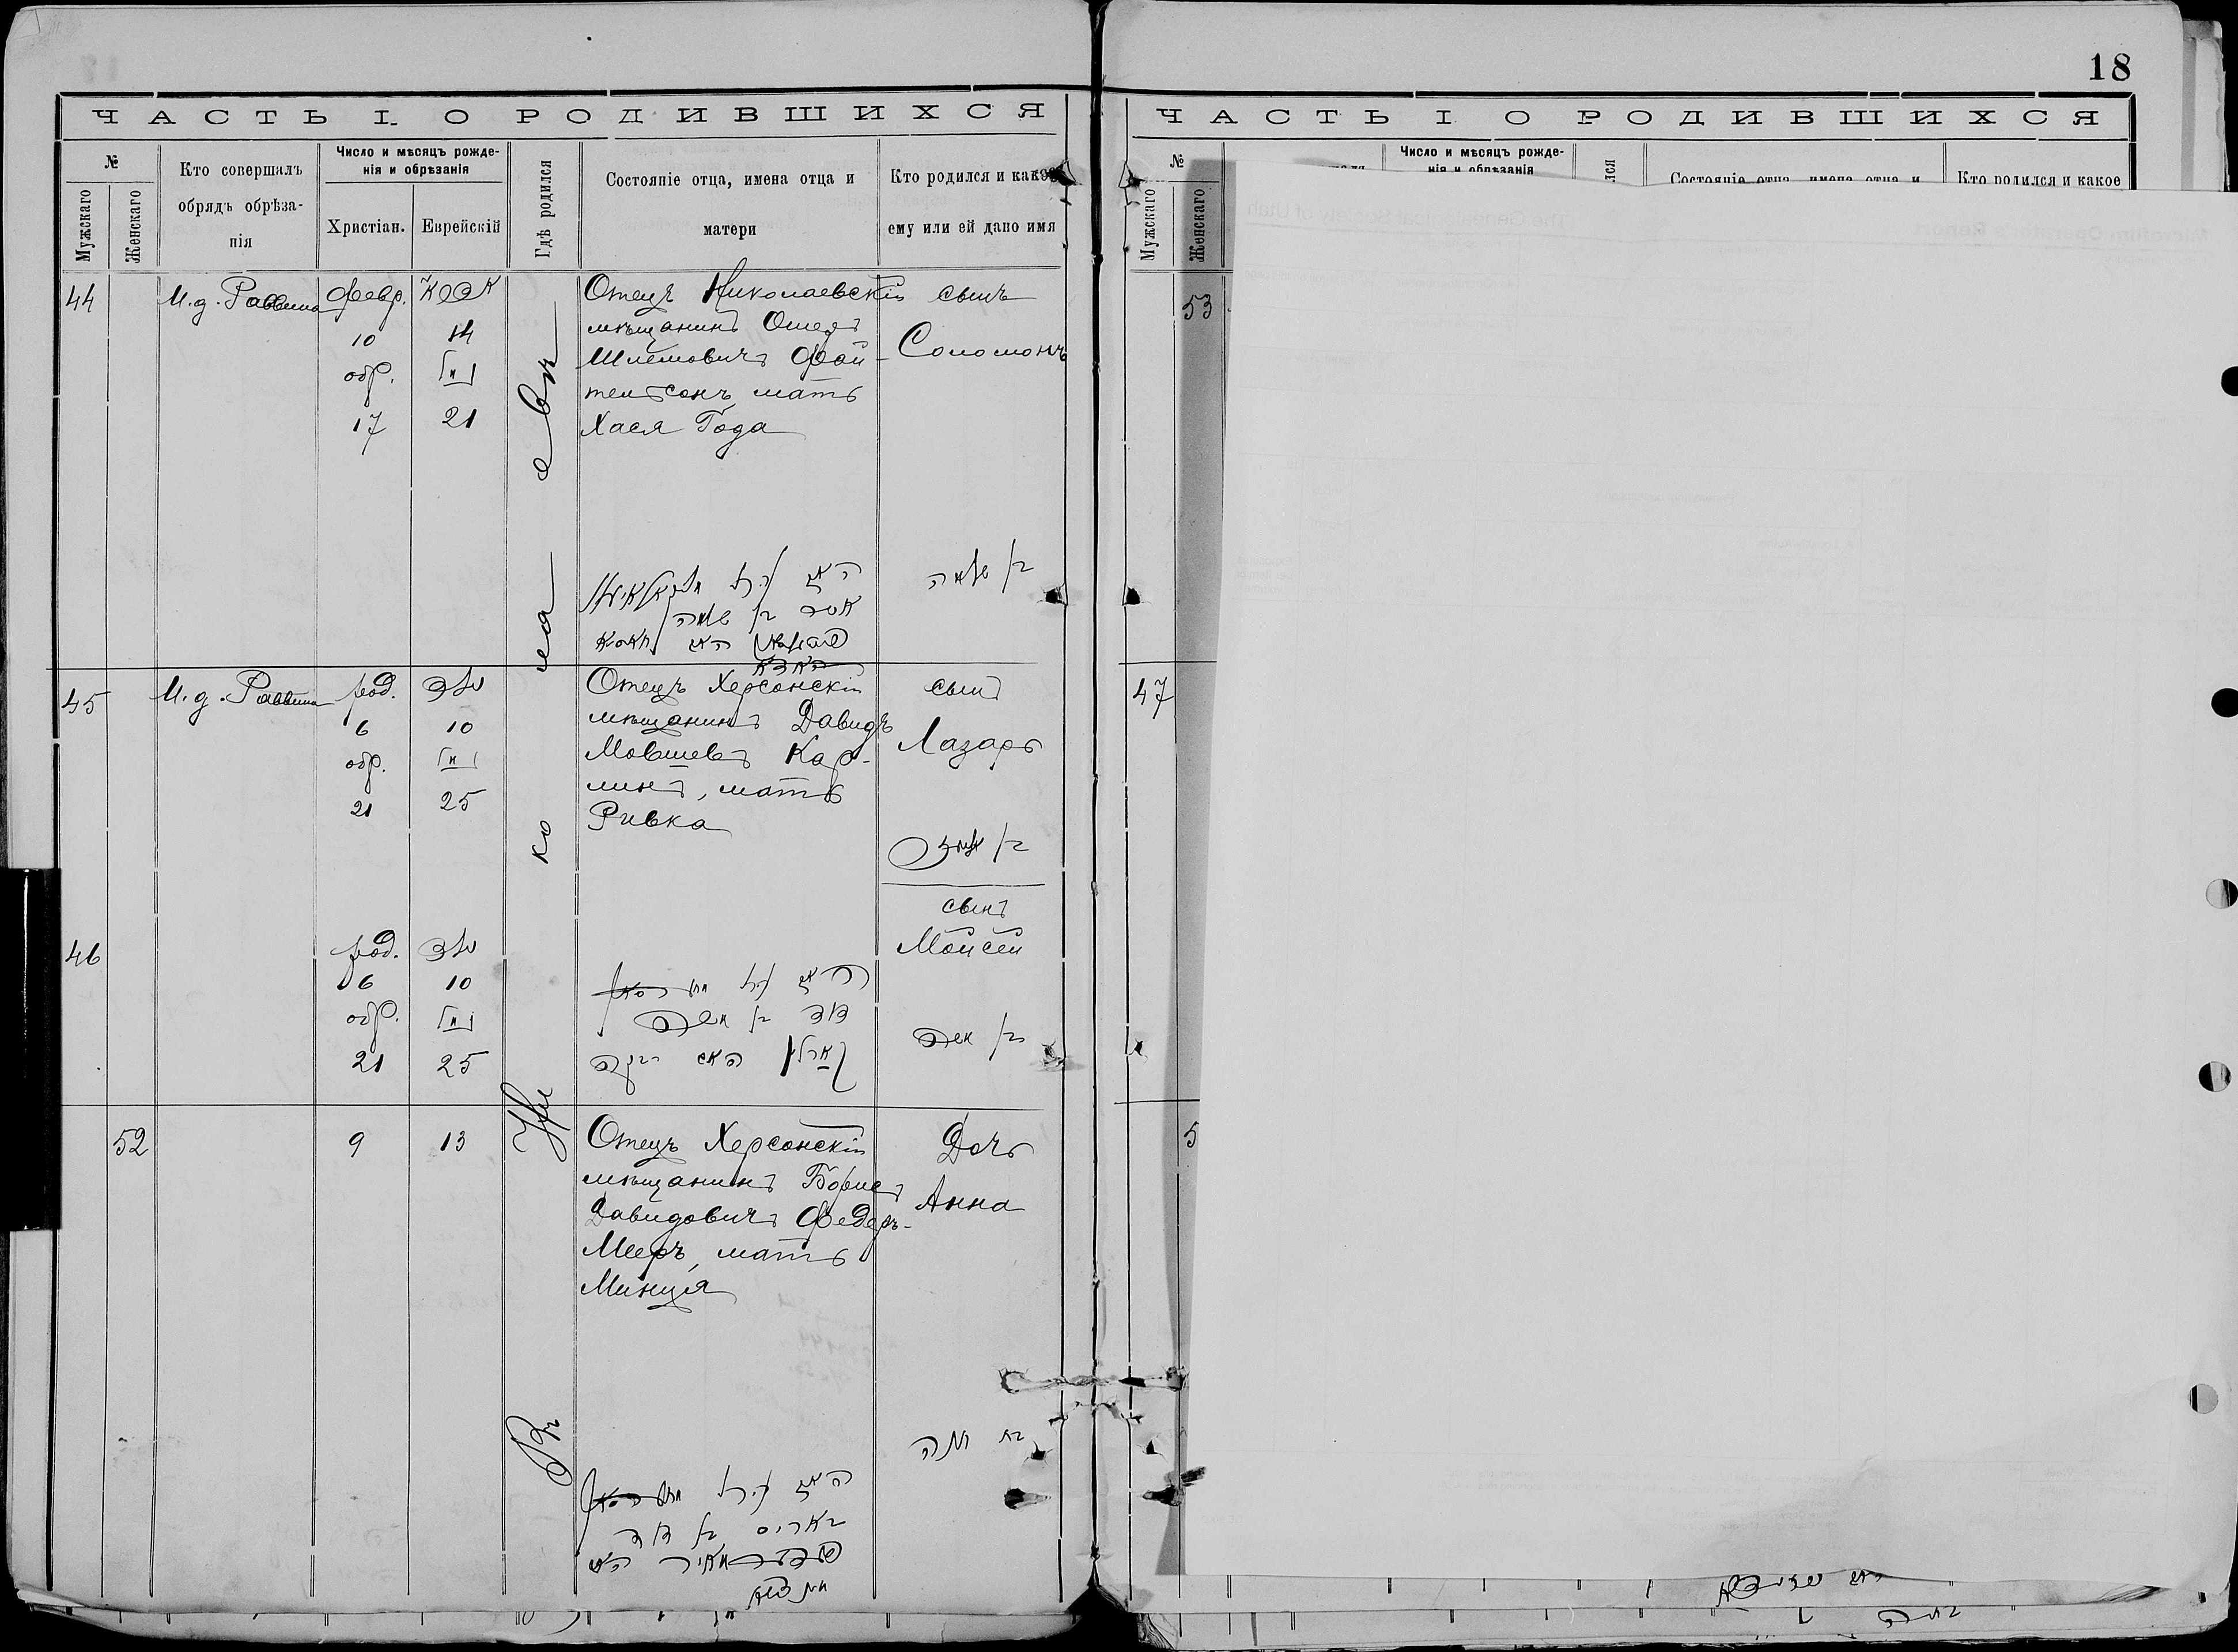 18
ЧАСТЬ I. О РОДИВШИХСЯ
№
Мужскаго
Женскаго
Кто совершалъ
обрядъ обрѣза-
нія
Число и мѣсяцъ рожде-
нія и обрѣзанія
Христіан.
Еврейскій
Гдѣ родился
Состояніе отца, имена отца и
матери
Кто родился и какое
ему или ей дано имя
Въ Николаевѣ
44
И. д. Раввина
Февр.
10
14
обр.
17
21
Отецъ Николаевскій
мѣщанинъ Ошер
Шлемовичъ Фай-
тельсонъ, мать
Хася Года
сынъ
Соломонъ
בן שלמה
45
И. д. Раввина
род.
6
10
обр.
21
25
Отецъ Херсонскій
мѣщанинъ Давидъ
Мовшевъ Кар-
линъ, мать
Ривка
сынъ
Лазарь
46
род.
6
10
обр.
21
25
сынъ
Мойсей
דוד בן משה
קארלין האם רבקה
בן משה
52
9
13
Отецъ Херсонскій
мѣщанинъ Борисъ
Давидовичъ Федеръ-
Мееръ, мать
Минця
Дочь
Анна
בת חנה
באריס בן דוד
ЧАСТЬ I О РОДИВШИХСЯ
№
Мужскаго
Женскаго
Число и мѣсяцъ рожде-
нія и обрѣзанія
Состояніе отца, имена отца и
Кто родился и какое
53
47
5